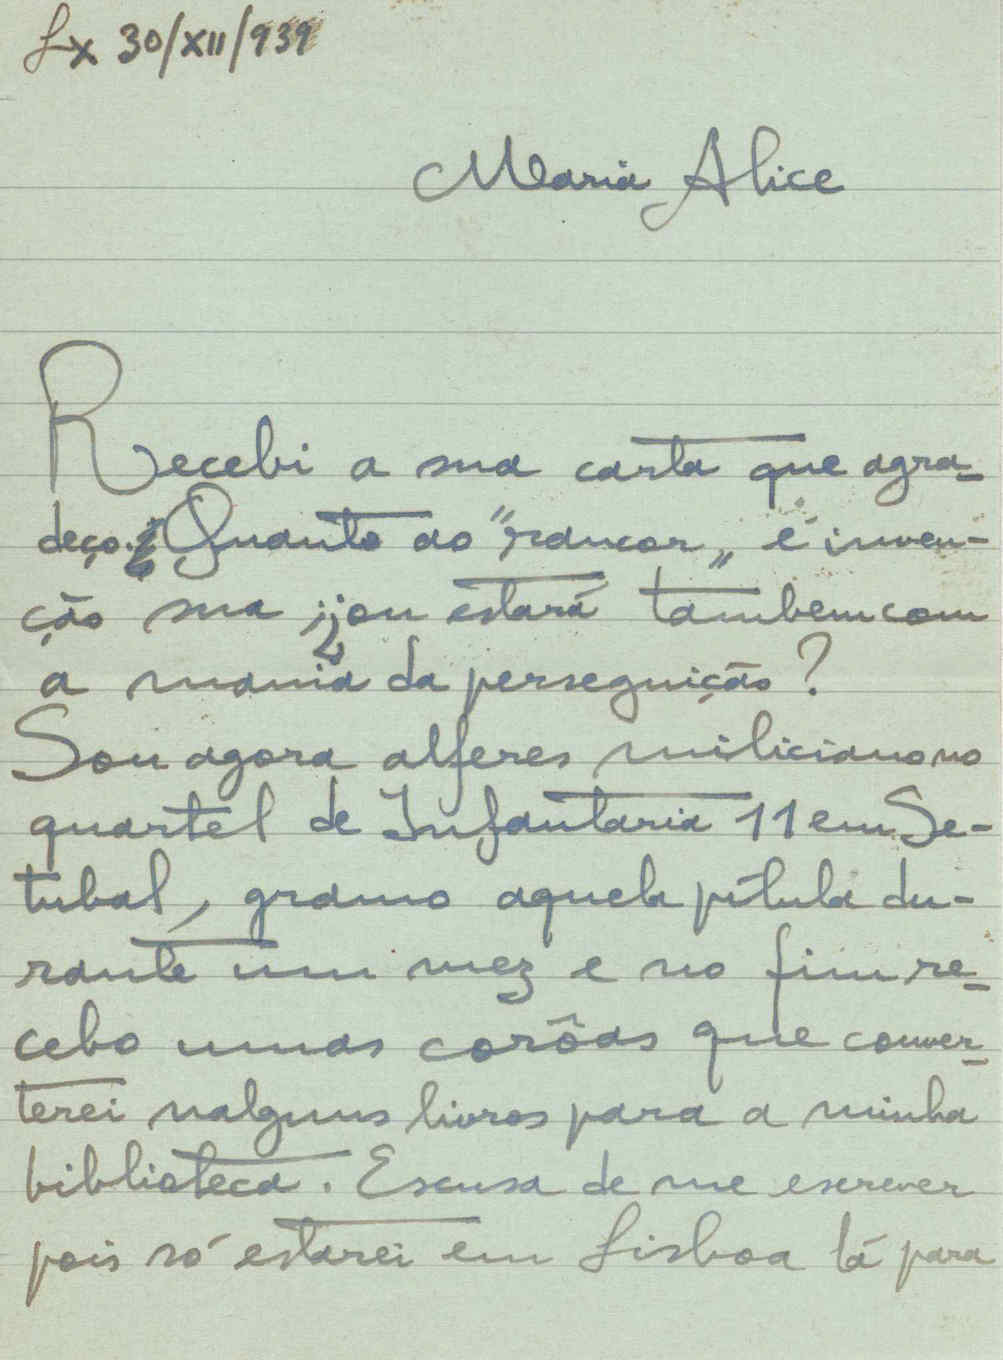 Lx 30/XII/939
Maria Alice
Recebi a sua carta que agra-
deço. Quanto ao "rancor" é inven-
ção sua; ou estará tambem com
a mania da perseguição?
Sou agora alferes miliciano no
quartel de Infantaria 11 em Se-
tubal, gramo aquela pílula du-
rante um mez e no fim re-
cebo umas corôas que conver-
terei nalguns livros para a minha
biblioteca. Escusa de me escrever
pois só estarei em Lisboa lá para